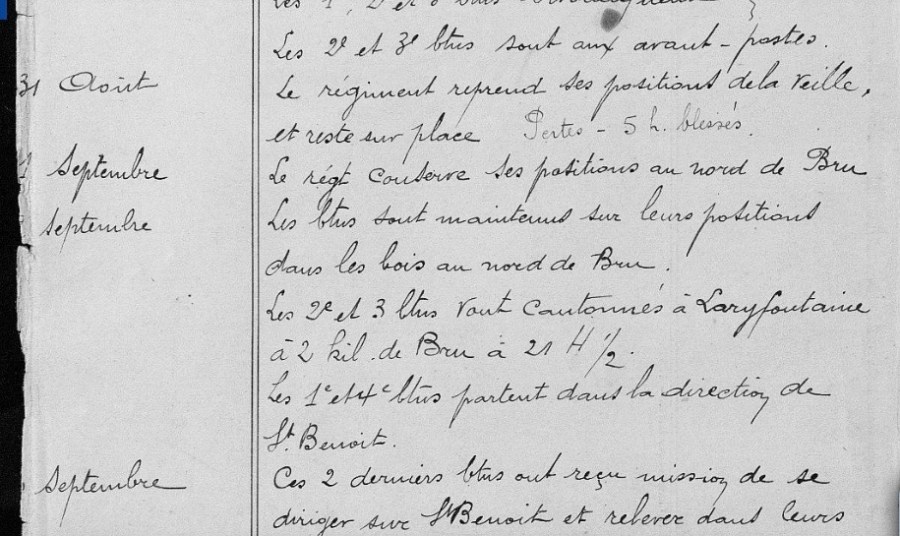 Les 1, 2 et 3 btus
Les 2e et 3e btus sont aux avant-postes.
31 Août Le régiment reprend ses positions de la veille,
et reste sur place Pertes - 5 h. blessés.
1 Septembre Le régt conserve ses positions au nord de Bru
Septembre Les btns sont maintenus sur leurs positions
dans les bois au nord de Bru.
Les 2e et 3 btns vont cantonnés à Laryfontaine
à 2 kil. de Bru à 21 H 1/2.
Les 1e et 4e btns partent dans la direction de
St. Benoit.
Septembre Ces 2 derniers btns ont reçu mission de se
diriger sur St Benoit et relever dans leurs